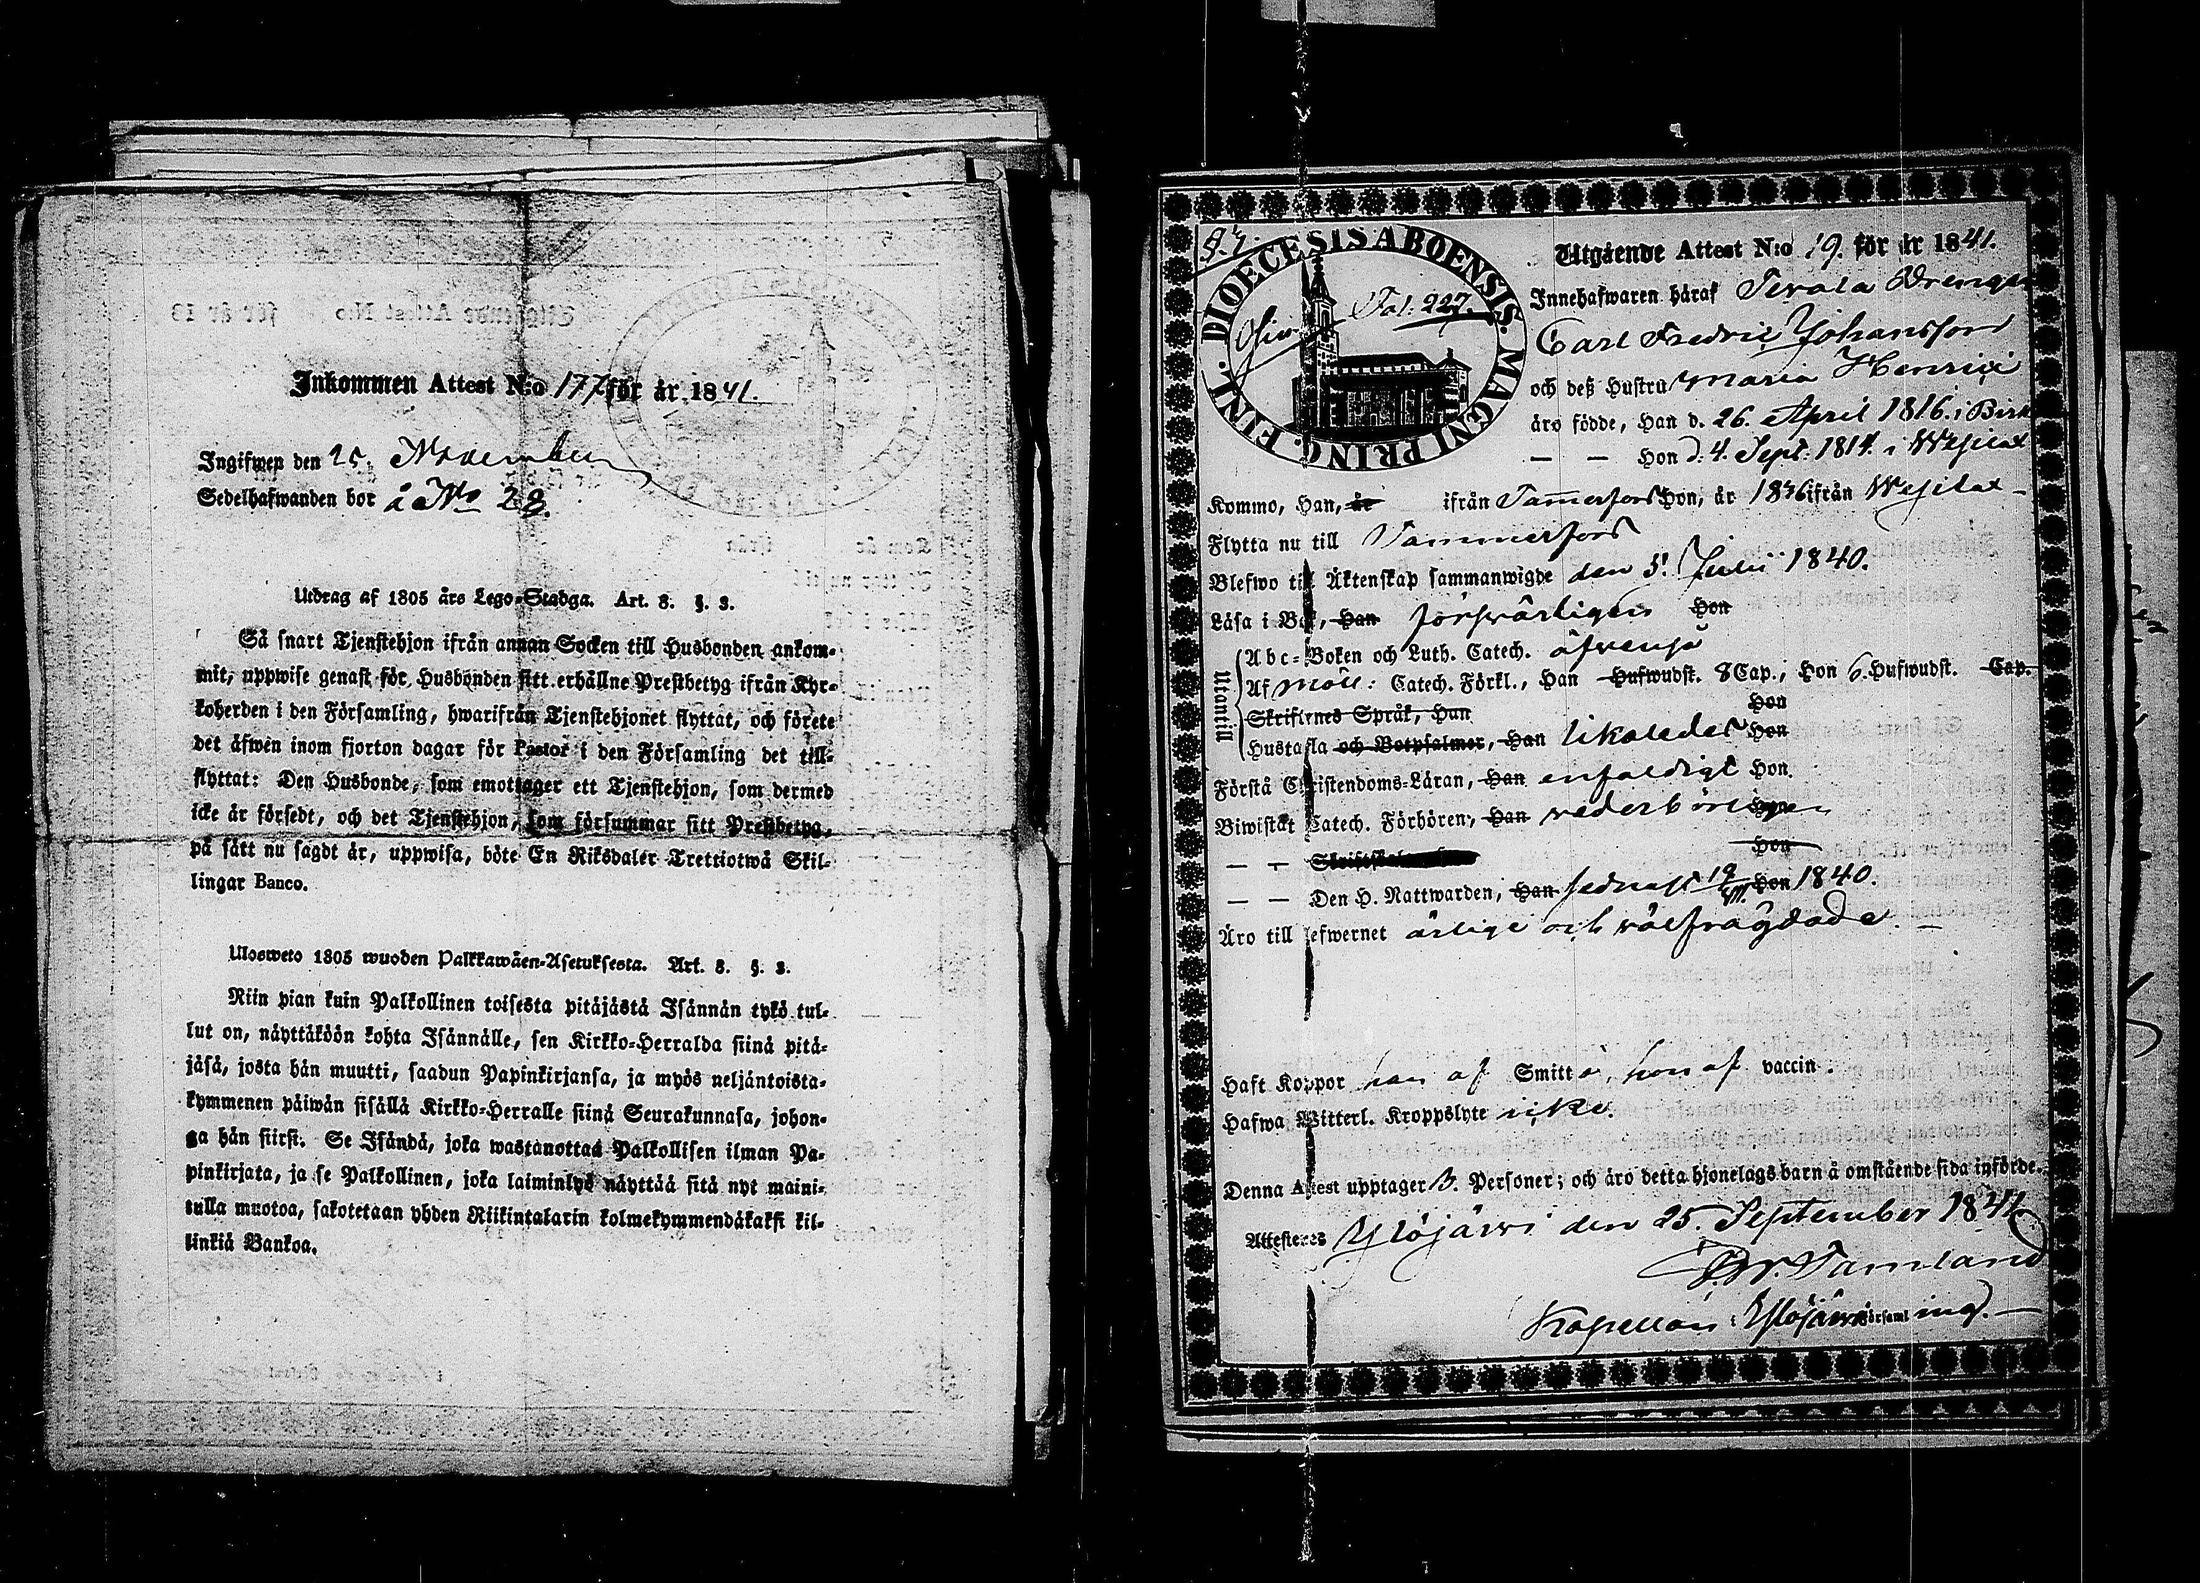 Inkommen Attest N:o 177 för år 1841.
Ingifwen den 25. November
Sedelhafwanden bor å No 28.
Utdrag af 1805 års Lego-Stadga. Art. 8. §. 3.
Så snart Tjenstehjon ifrån annan Socken till Husbonden ankom-
mit, uppwise genast för Husbonden sitt erhållne Prestbetyg ifrån Kyr-
koherden i den Församling, hwarifrån Tjenstehjonet flyttat, och förete
det äfwen inom fjorton dagar för Pastor i den Församling det till-
flyttat: Den Husbonde, som emottager ett Tjenstehjon, som dermed
icke är försedt, och det Tjenstehjon, som försummar sitt Prestbetyg,
på sätt nu sagdt är, uppwisa, böte En Riksdaler Trettiotwå Skil-
lingar Banco.
Ulosweto 1805 wuoden Palkkawäen-Asetuksesta. Art. 8. §. 3.
Niin pian kuin Palkollinen toisesta pitäjästä Isännän tykö tul-
lut on, näyttäköön kohta Isännälle, sen Kirkko-Herralda siinä pitä-
jäsä, josta hän muutti, saadun Papinkirjansa, ja myös neljäntoista-
kymmenen päiwän sisällä Kirkko-Herralle siinä Seurakunnasa, johon-
ga hän siirsi. Se Isändä, joka wastanottaa Palkollisen ilman Pa-
pinkirjata, ja se Palkollinen, joka laiminlyö näyttää sitä nyt maini-
tulla muotoa, sakotetaan yhden Riikintalarin kolmekymmendäkaksi kil-
linkiä Bankoa.
DIOECESIS ABOENSIS. MAGNI PRINC. FINL.
Fol: 227.
Utgående Attest N:o 19. för år 1841.
Innehafwaren häraf Terala Drengen
Carl Fredric Johansson
och deß Hustru Maria Henrici
äro födde, Han d. 26. April 1816. i Birk
— — Hon d. 4. Sept. 1814. i Wesilax
Kommo, Han, år ifrån Tamerfors Hon, år 1836 ifrån Wesilax
Flytta nu till Tammerfors
Blefwo till Äktenskap sammanwigde den 5. Julii 1840.
Läsa i Bok, Han försvarligen Hon
Utantill
Abc-Boken och Luth. Catech. äfvenså
Af Möll: Catech. Förkl., Han Hufwudst. 8 Cap.; Hon 6. Hufwudst. Cap.
Skriftenes Språk, Han Hon
Hustafla och Botpsalmer, Han likaledes Hon
Förstå Christendoms-Läran, Han enfaldigt Hon.
Biwistat Catech. Förhören, Han vederbörligen Hon
— — Hon
— — Den H. Nattwarden, Han sednast 19/VII. Hon 1840.
Äro till lefwernet ärlige och välfrägdade. —
Haft Koppor han af Smitt o, hon af vaccin.
Hafwa Witterl. Kroppslyte icke.
Denna Attest upptager 3. Personer; och äro detta hjonelags barn å omstående sida införde.
Attesteres Ylöjärvi den 25. September 1841.
Tamland
Kapellan i Ylöjärvi Församl ing. —